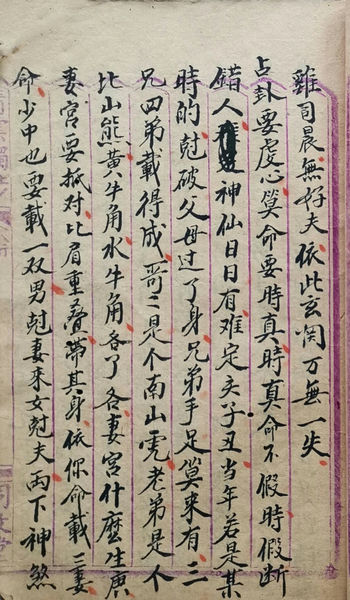 雞司晨無好夫依此玄関万無一失
占卦要虔心算命要時真時真命不假時假断
錯人神仙日日有难定亥子丑当年若是某
時的尅破父母过了身兄弟手足算来有三
兄四弟載得成哥二是个南山虎老弟是个
比山熊黄牛角水牛角各了各妻宮什麼生庚
妻宮要抵对比肩重叠帶其身依你命載三妻
命少中也要載一双男尅妻来女尅夫両下神煞